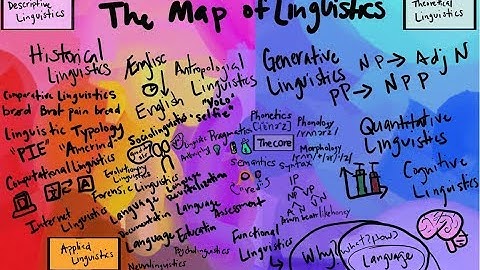 The Map of Linguistics
Descriptive
Linguistics
Theoretical
Linguistics
Historical
Linguistics
Comparative Linguistics
bread Brot pain bread
Linguistic Typology
"PIE" "Amerind"
Computational Linguistics
Internet
Linguistics
Applied
Linguistics
Ænglisc
English
Antropological
Linguistics
"YOLO"
"selfie"
Sociolinguistics
Evolutionary
Linguistics
Forensic Linguistics
Language
Documentation
Language
Revitalization
Language
Assessment
Language Education
Psycholinguistics
Neurolinguistics
Linguistic
Pragmatics
Phonetics
The core
Phonology
Morphology
Semantics
Syntax
"red"
NP VP
Functional
Linguistics
Generative
Linguistics
NP → Adj N
PP → N P P
Quantitative
Linguistics
Cognitive
Linguistics
Why?
What? How?
Language